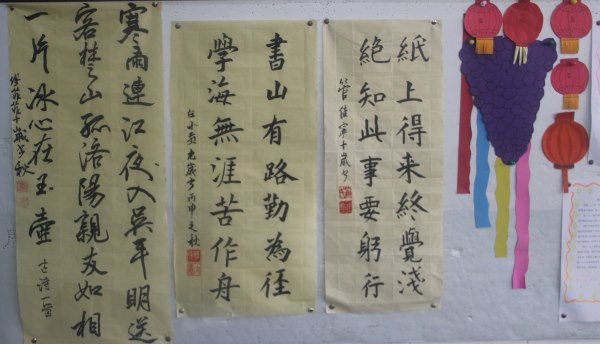 寒雨連江夜入吴平明送
客楚山孤洛陽親友如相
一片冰心在玉壺 古诗一首
十歲書秋
書山有路勤為徑
學海無涯苦作舟
任小 歲書丙申之秋
紙上得来終覺淺
絶知此事要躬行
管佳寧十歲書